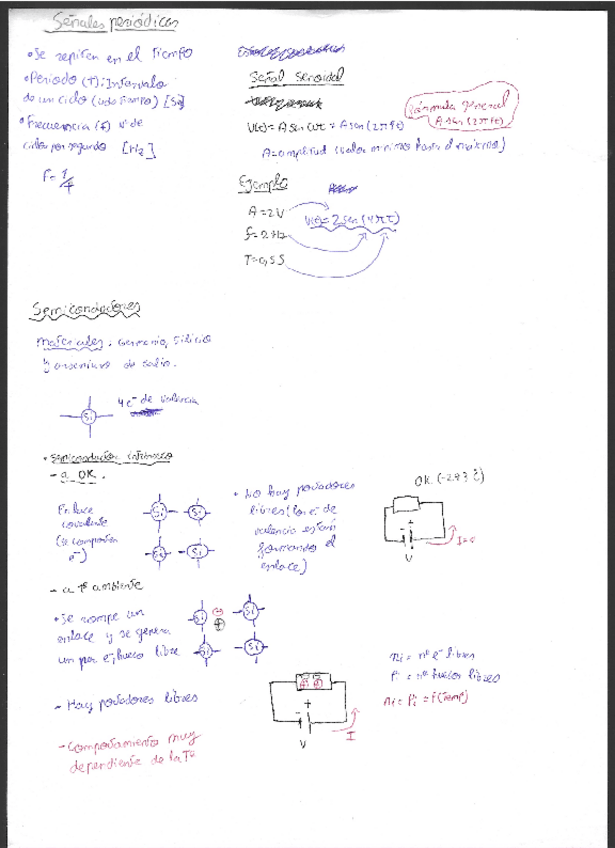 Señales periódicas
• Se repiten en el tiempo
• Periodo (T): Intervalo
de un ciclo (cada tiempo) [Sg]
• Frecuencia (f) nº de
ciclos por segundo [Hz]
F= 1/T
Señal senoidal
V(t)= A sen(ωt = A sen(2πft)
A=amplitud (valor mínimo hasta el máximo)
Fórmula general
A sen(2πft)
Ejemplo
A=2V
f=2Hz
T=0,5S
V(t)=2sen(4πt)
Semiconductores
Materiales. Germanio, Silicio
y arseniuro de Galio.
Si
4e⁻ de valencia
• Semiconductor intrínseco
- a OK.
Enlace
covalente
(se comparten
e⁻)
Si Si
Si Si
• No hay portadores
libres (los e⁻ de
valencia están
formando el
enlace)
OK (-273 ℃)
- +
V
I=0
- a Tª ambiente
• Se rompe un
enlace y se genera
un par e⁻, hueco libre
Si - + Si
Si Si
- Hay portadores libres
- Comportamiento muy
dependiente de la Tª
- +
V
I
ni = nº e⁻ libres
Pi = nº huecos libres
ni = Pi = f(Temp)